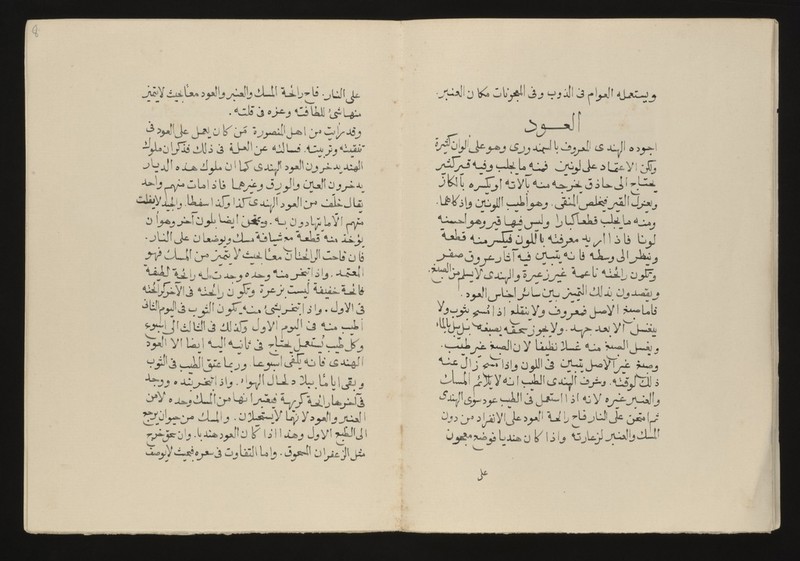 ويستعمله العوام فى الذوب وفى المجونات مكان العنبر.
العــود
اجوده الهندى المعروف بالمندورى وهو على الوان كثيرة
ولكن الاعتماد على لونين فمنه ما يجلب وفيه قير كثير
يحتاج الى حاذق يخرجه منه بآلاته او يكسره بالكاز
ويعزل القير فيخلص المنقى. وهو اطيب اللونين واذكاهما.
ومنه ما يجلب قطعا كبارا وليس فيها قير وهو احسنه
لونا فاذا اريد معرفته باللون فيكسر منه قطعة
وينظر الى وسطه فانه يتبين فيه آثار عروق صفر
وتكون رائحته ناعمة غير زعرة والهندى لا يسلم من الصبغ
ويقصدون بذلك التمييز بين سائر اجناس العود.
فاما صبغ الاصل فمعروف ولا ينقلع اذا مسح بثوب ولا
ينغسل الا بعد جهد. ولا يجوز سحقه بصبغه بل يبل بالماء
ويغسل الصبغ منه غسلا نظيفا لان الصبغ غير طيب.
وصبغ غير الاصل يتبين فى اللون واذا مسح زال عنه
ذلك لوقته. وشرف الهندى الطيب انه لا يلائم المسك
والعنبر غيره لانه اذا استعمل فى الطيب عود سوى الهندى
ثم امتحن على النار فاح رائحة العود على الانفراد من دون
المسك والعنبر لزعارته واذا كان هنديا فوضع معجون
على
على النار. فاح رائحة المسك والعنبر والعود معا بحيث لا يتميز
منها شئ للطافته وعزه فى قلته.
وقد رايت من اهل المنصورة ممن كان يعمل على العود فى
تنقيته وتربيته. فسالته عن العلة فى ذلك فذكر ان ملوك
الهند يدخرون العود الهندى كما ان ملوك هذه الديار
يدخرون العين والورق وغيرها فاذا مات منهم واحد
يقال خلف من العود الهندى كذا وكذا سفطا. والجيد لا يفلت
منهم الا ما يتهادون به. ويمتحن ايضا بلون آخر وهو ان
يؤخذ منه قطعة مع شيافة مسك ويوضعان على النار.
فان فاحت الرائحتان معا بحيث لا يتميز من المسك فهو
المعتمد. واذا تبخر منه وحده وجدت له رائحة لطيفة
فائحة خفيفة ليست بزعرة وتكون رائحته فى الآخر كرائحته
فى الاول. واذا تبخر بشئ منه يكون الثوب فى اليوم الثانى
اطيب منه فى اليوم الاول وكذلك فى الثالث الى اسبوع
وكل طيب يستعمل يحتاج فى ثانيه اليه ايضا الا العود
الهندى فانه يكفى اسبوعا. وربما عتق الطيب فى الثوب
وبقى اياما ببلاد لحال الهواء. واذا تبخر بنده ووجد
فى آخرها رائحة كريهة فيعتبر انها من المسك وحده لان
العنبر والعود لا يستحيلان. والمسك من حيوان يرجع
الى الطبع الاول وهذا اذا كان العود هنديا. وان سحق خرج
مثل الزعفران المسحوق. واما التفاوت فى سعره فبحيث لا يوصف